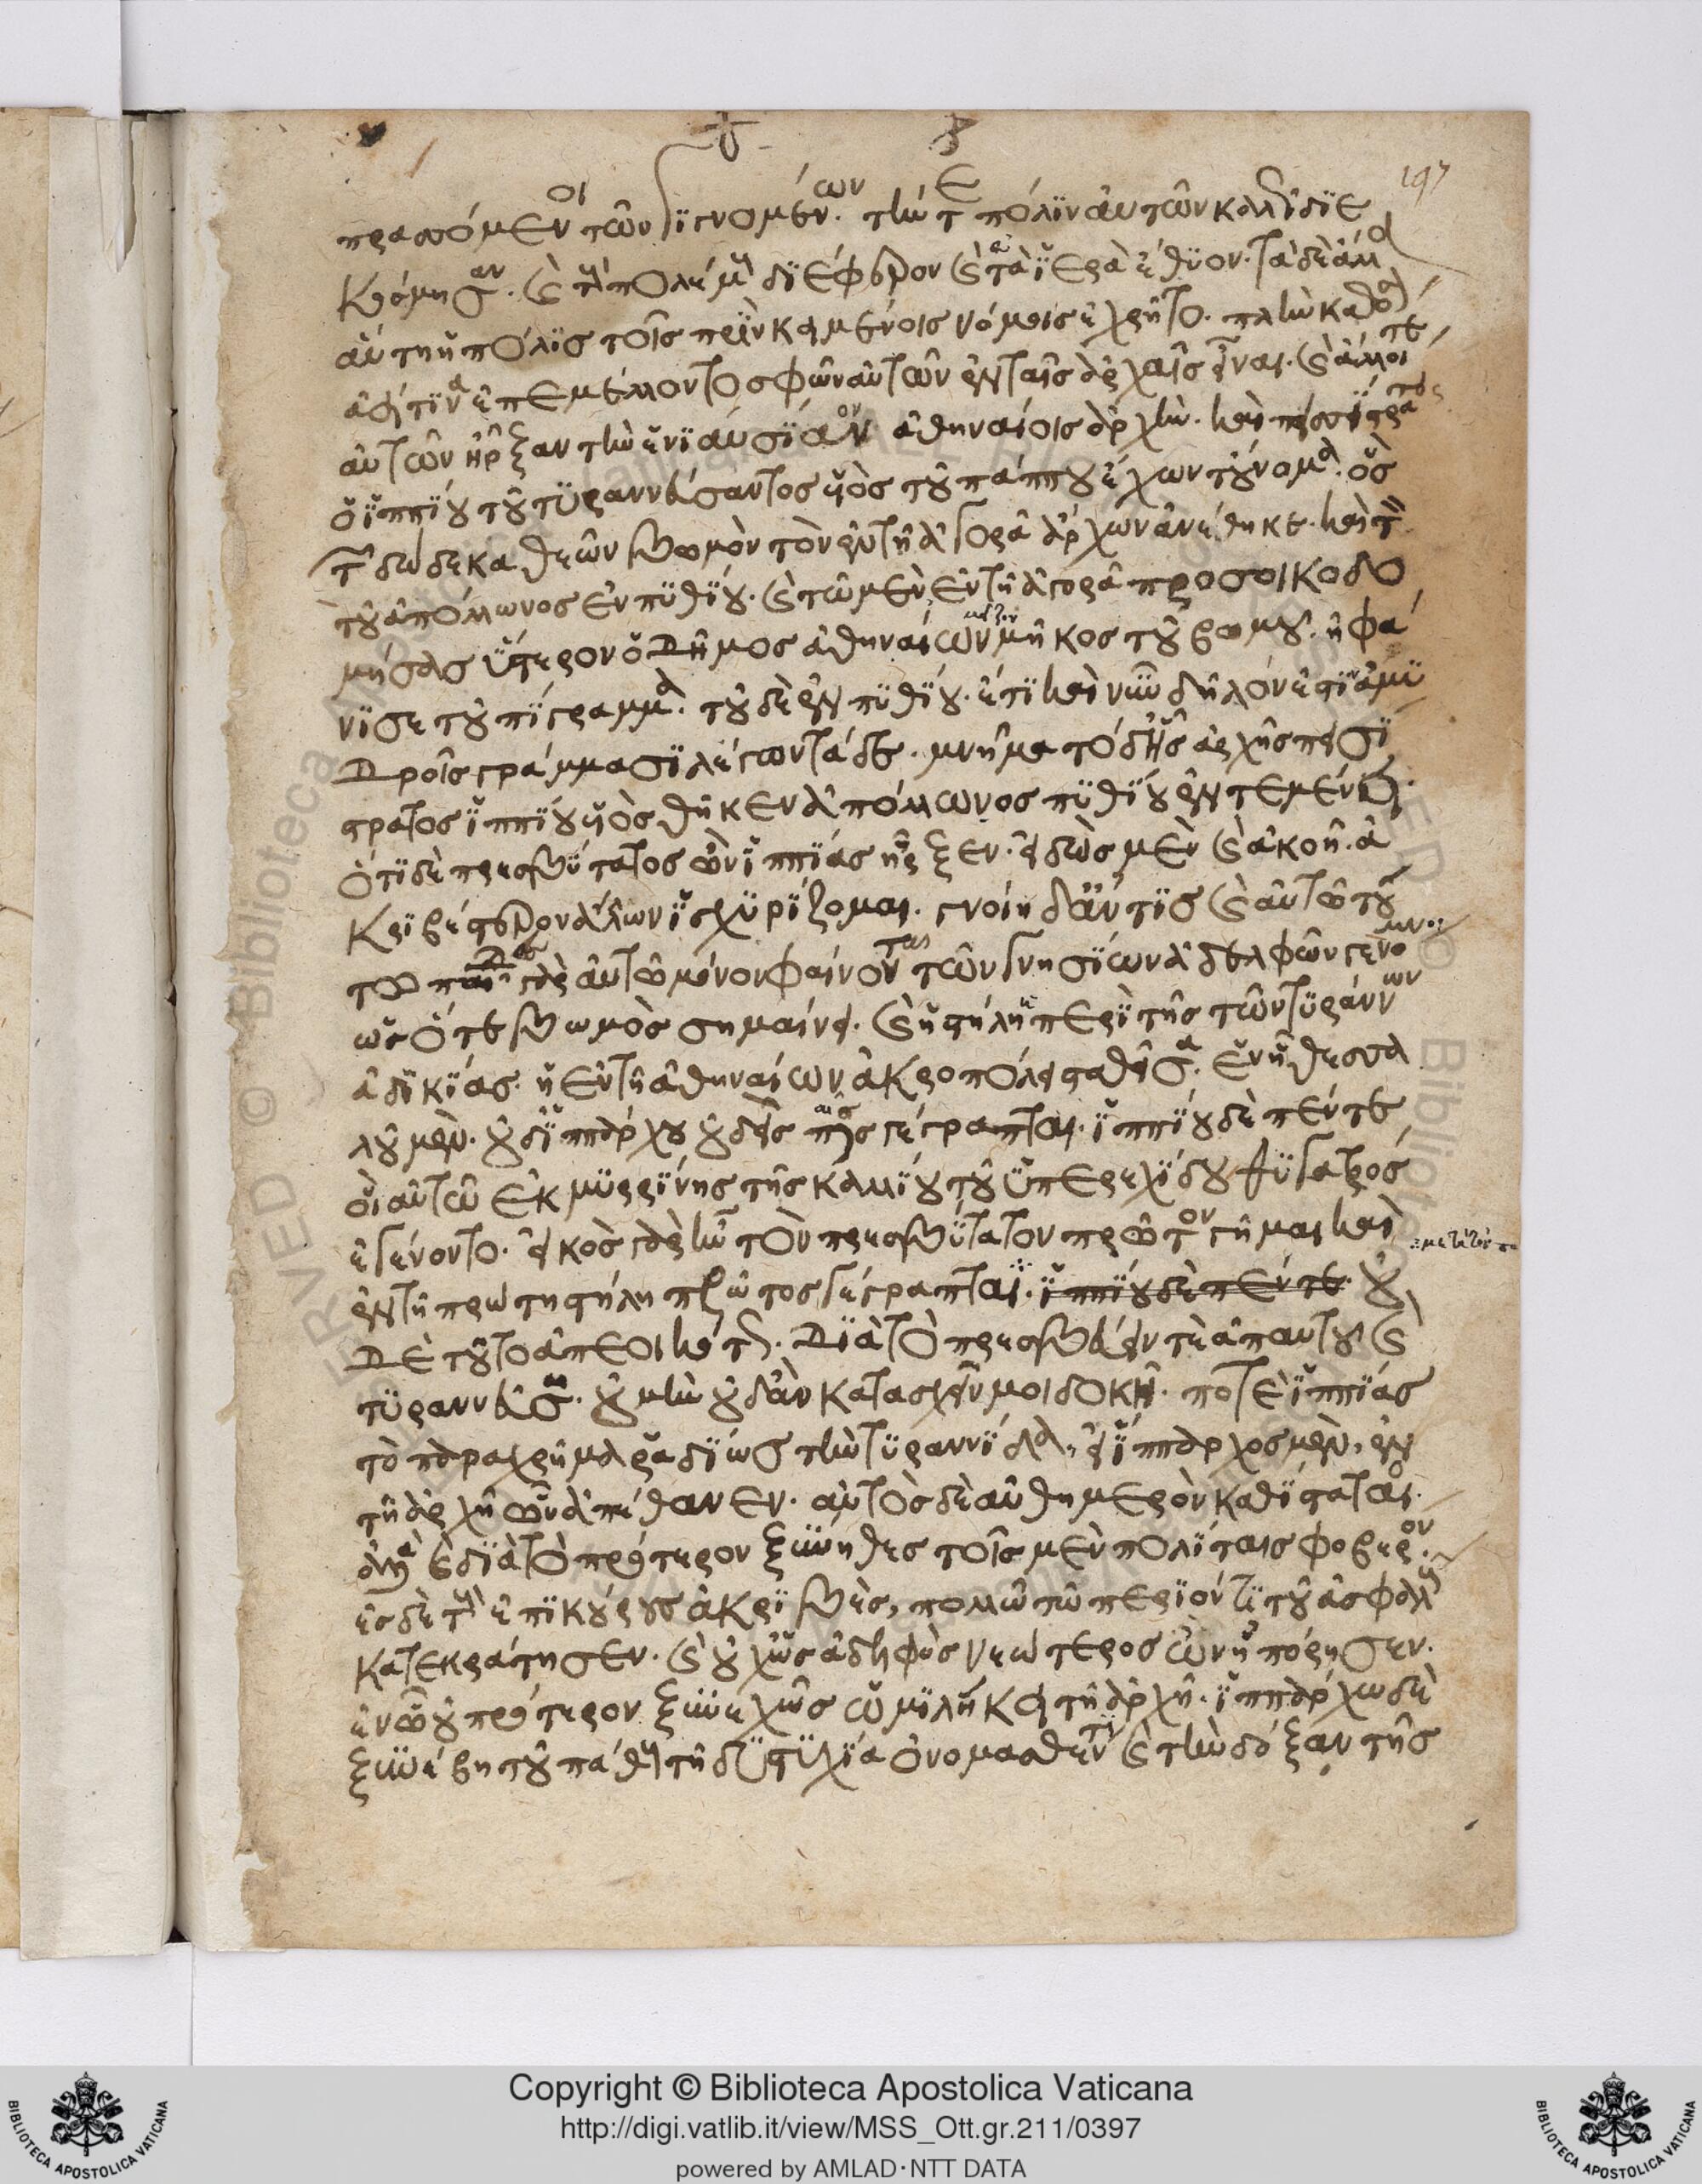 197
πρασσόμενοι τῶν γιγνομένων. τήν τε πόλιν αὐτῶν καλῶς διε
κόσμησαν. καὶ τοὺς πολέμους διέφερον καὶ ἐς τὰ ἱερὰ ἔθυον. τὰ δὲ ἄλλα
αὐτὴ ἡ πόλις τοῖς πρὶν κειμένοις νόμοις ἐχρῆτο. πλὴν καθόσον
ἀεί τινα ἐπεμέλλοντο σφῶν αὐτῶν ἐν ταῖς ἀρχαῖς εἶναι. καὶ ἄλλοι τε
αὐτῶν ἦρξαν τὴν ἐνιαύσιον ἀθηναίοις ἀρχήν. καὶ πεισίστρατος
ὁ ἱππίου τοῦ τυραννεύσαντος υἱὸς τοῦ πάππου ἔχων τοὔνομα. ὃς
τῶν δώδεκα θεῶν βωμὸν τὸν ἐν τῇ ἀγορᾷ ἄρχων ἀνέθηκε. καὶ τὸν
τοῦ ἀπόλλωνος ἐν πυθίου. καὶ τῷ μὲν ἐν τῇ ἀγορᾷ προσοικοδο
μήσας ὕστερον ὁ δῆμος ἀθηναίων μεῖζον μῆκος τοῦ βωμοῦ. ἠφά
νισε τοὐπίγραμμα. τοῦ δὲ ἐν πυθίου. ἔτι καὶ νῦν δῆλόν ἐστιν ἀμυ
δροῖς γράμμασι λέγον τάδε. μνῆμα τόδ' ἧς ἀρχῆς πεισί
στρατος ἱππίου υἱὸς θῆκεν ἀπόλλωνος πυθίου ἐν τεμένει.
ὅτι δὲ πρεσβύτατος ὢν ἱππίας ἦρξεν. εἰδὼς μὲν καὶ ἀκοῇ. ἀ
κριβέστερον ἄλλων ἰσχυρίζομαι. γνοίη δ' ἄν τις καὶ αὐτῷ τού
τῳ παῖδες γὰρ αὐτῷ μόνον φαίνονται τῶν γνησίων ἀδελφῶν γενό
μενοι
ὡς ὅ τε βωμὸς σημαίνει. καὶ ἡ στήλη περὶ τῆς τῶν τυράννων
ἀδικίας. ἡ ἐν τῇ ἀθηναίων ἀκροπόλει σταθεῖσα. ἐν ᾗ θεσσα
λοῦ μὲν. οὐδ' ἱππάρχου οὐδεὶς παῖς γέγραπται. ἱππίου δὲ πέντε
οἳ αὐτῷ ἐκ μυρρίνης τῆς καλλίου τοῦ ὑπερεχίδου θυγατρός
ἐγένοντο. εἰκὸς γὰρ ἦν τὸν πρεσβύτατον πρῶτον γῆμαι καὶ
ἐν τῇ πρώτῃ στήλῃ πρῶτος γέγραπται. ἱππίου δὲ πέντε. οὐ
δὲ τοῦτο ἀπεοικότως. διὰ τὸ πρεσβεύειν τε ἀπ' αὐτοῦ καὶ
τυραννεῦσαι. οὐ μὴν οὐδ' ἂν κατασχεῖν μοι δοκεῖ. ποτε ἱππίας
τὸ παραχρῆμα ῥᾳδίως τὴν τυραννίδα, εἰ ἵππαρχος μὲν, ἐν
τῇ ἀρχῇ ὢν ἀπέθανεν. αὐτὸς δὲ αὐθημερὸν καθίστατο.
ἀλλὰ καὶ διὰ τὸ πρότερον ξύνηθες τοῖς μὲν πολίταις φοβερὸν.
ἐς δὲ τοὺς ἐπικούρους ἀκριβὲς, πολλῷ τῷ περιόντι τοῦ ἀσφαλοῦς
κατεκράτησεν. καὶ οὐχ ὡς ἀδελφὸς νεώτερος ὢν ἠπόρησεν.
ἐν ᾧ οὐ πρότερον ξυνεχῶς ὡμιλήκει τῇ ἀρχῇ. ἱππάρχῳ δὲ
ξυνέβη τοῦ πάθους τῇ δυστυχίᾳ ὀνομασθέντι καὶ τὴν δόξαν τῆς
Copyright © Biblioteca Apostolica Vaticana
http://digi.vatlib.it/view/MSS_Ott.gr.211/0397
powered by AMLAD·NTT DATA
BIBLIOTECA APOSTOLICA VATICANA
BIBLIOTECA APOSTOLICA VATICANA